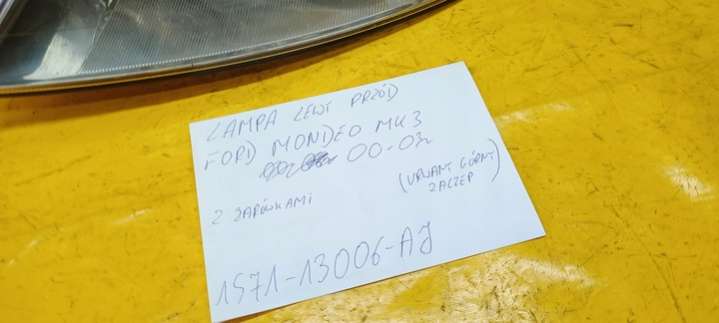 LAMPA LEWY PRZÓD
FORD MONDEO MK3
00-03r
Z ŻARÓWKAMI
(URWANY GÓRNY
ZACZEP)
1S71-13006-AJ